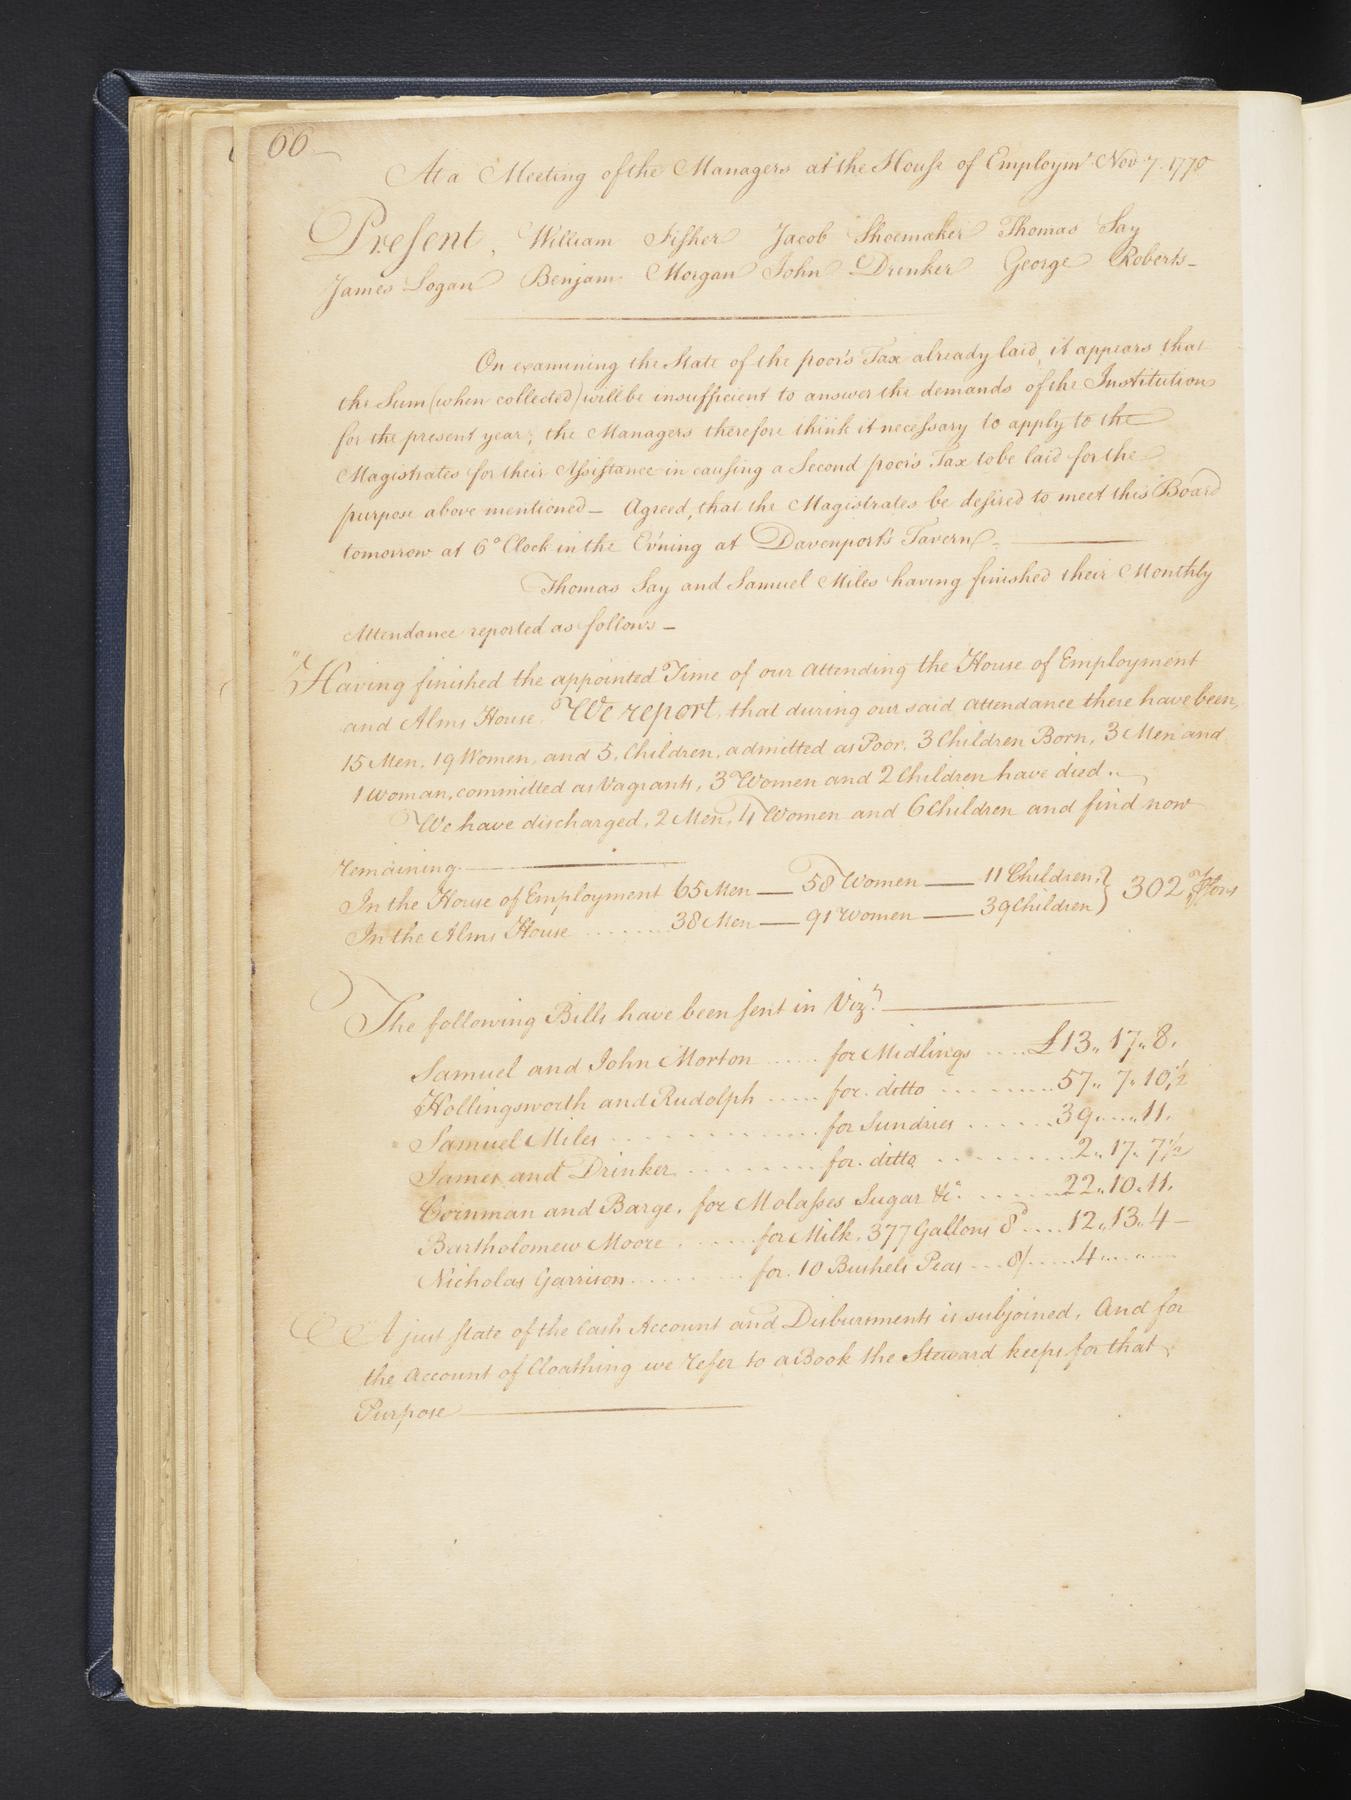 66
At a Meeting of the Managers at the House of Employmt Nov 7. 1770
Present, William Fisher Jacob Shoemaker Thomas Say
James Logan Benjamn Morgan John Drinker George Roberts
On examining the State of the poor's Tax already laid, it appears that
the Sum (when collected) will be insufficient to answer the demands of the Institution
for the present year; the Managers therefore think it necessary to apply to the
Magistrates for their Assistance in causing a Second poor's Tax to be laid for the
purpose above mentioned — Agreed, that the Magistrates be desired to meet this Board
tomorrow at 6 o Clock in the Ev'ning at Davenport's Tavern.
Thomas Say and Samuel Miles having finished their Monthly
Attendance reported as follows —
"Having finished the appointed Time of our attending the House of Employment
and Alms House, We report, that during our said attendance there have been,
15 Men, 19 Women, and 5, Children, admitted as Poor, 3 Children Born, 3 Men and
1 woman, committed as Vagrants, 3 Women and 2 Children have died..
We have discharged, 2 Men, 4 Women and 6 Children and find now
remaining.
In the House of Employment 65 Men — 58 Women — 11 Children, } 302
In the Alms House ........ 38 Men — 91 women — 39 Children
The following Bills have been sent in Viz.t
Samuel and John Morton ...... for Midlings .... £13,, 17,, 8.
Hollingsworth and Rudolph ..... for. ditto ......... 57,, 7,, 10 1/2
Samuel Miles .............. for Sundries ...... 39,, ,, 11.
James and Drinker ......... for. ditto ......... 2,, 17,, 7 1/2
Cornman and Barge, for Molasses Sugar &c. ...... 22,, 10,, 11.
Bartholomew Moore ....... for Milk, 377 Gallons 8d .... 12,, 13,, 4 —
Nicholas Garrison ......... for. 10 Bushels Peas --- 8/ .... 4 ,, ,,
A just state of the Cash Account and Disbursments is subjoined, And for
the Account of Cloathing we refer to a Book the Steward keeps for that
Purpose